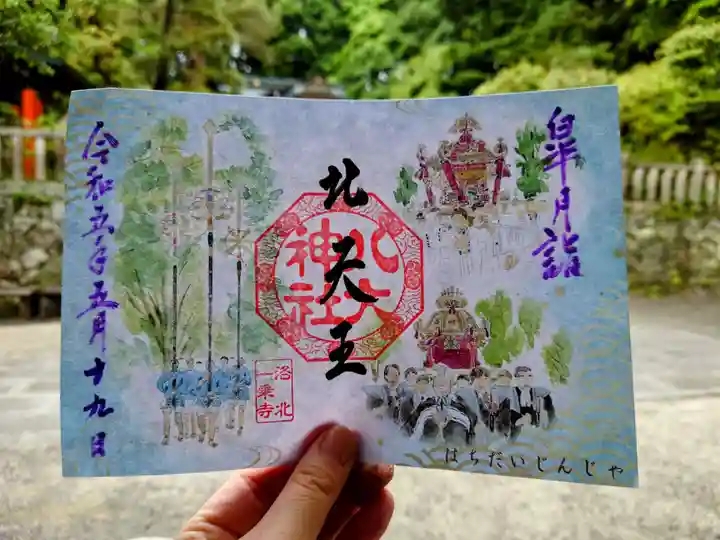 皐月詣
北天王
八大神社
洛北
一乗寺
令和五年五月十九日
はちだいじんじゃ